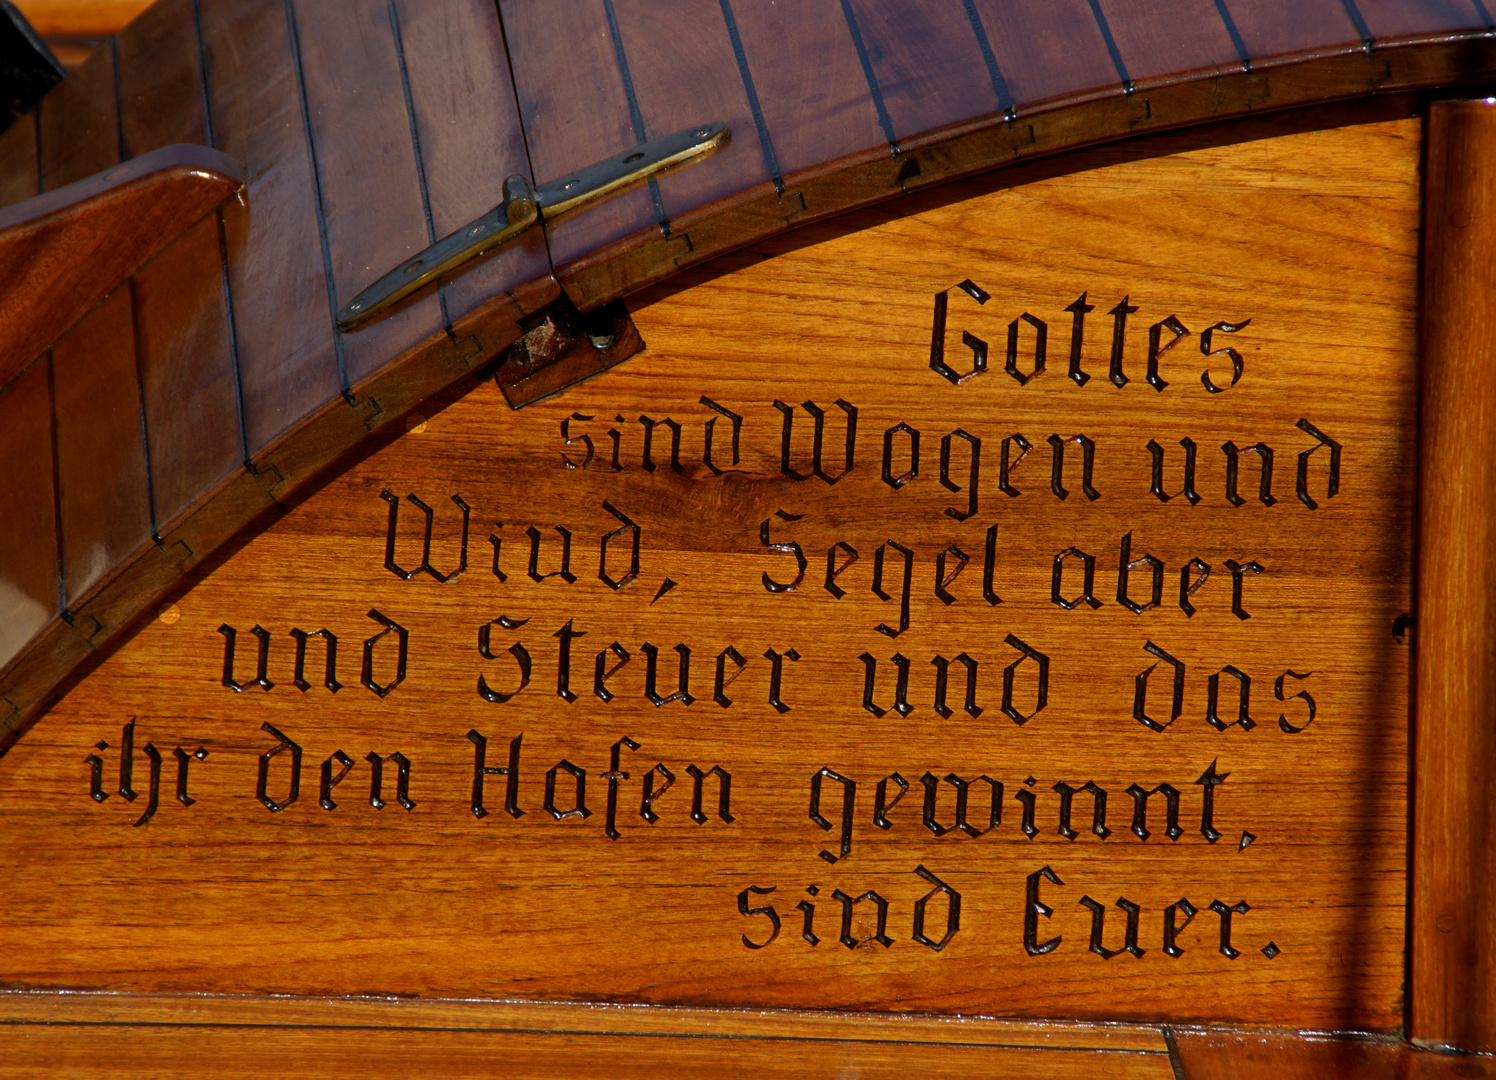 Gottes
sind Wogen und
Wind, Segel aber
und Steuer und das
ihr den Hafen gewinnt,
sind Euer.